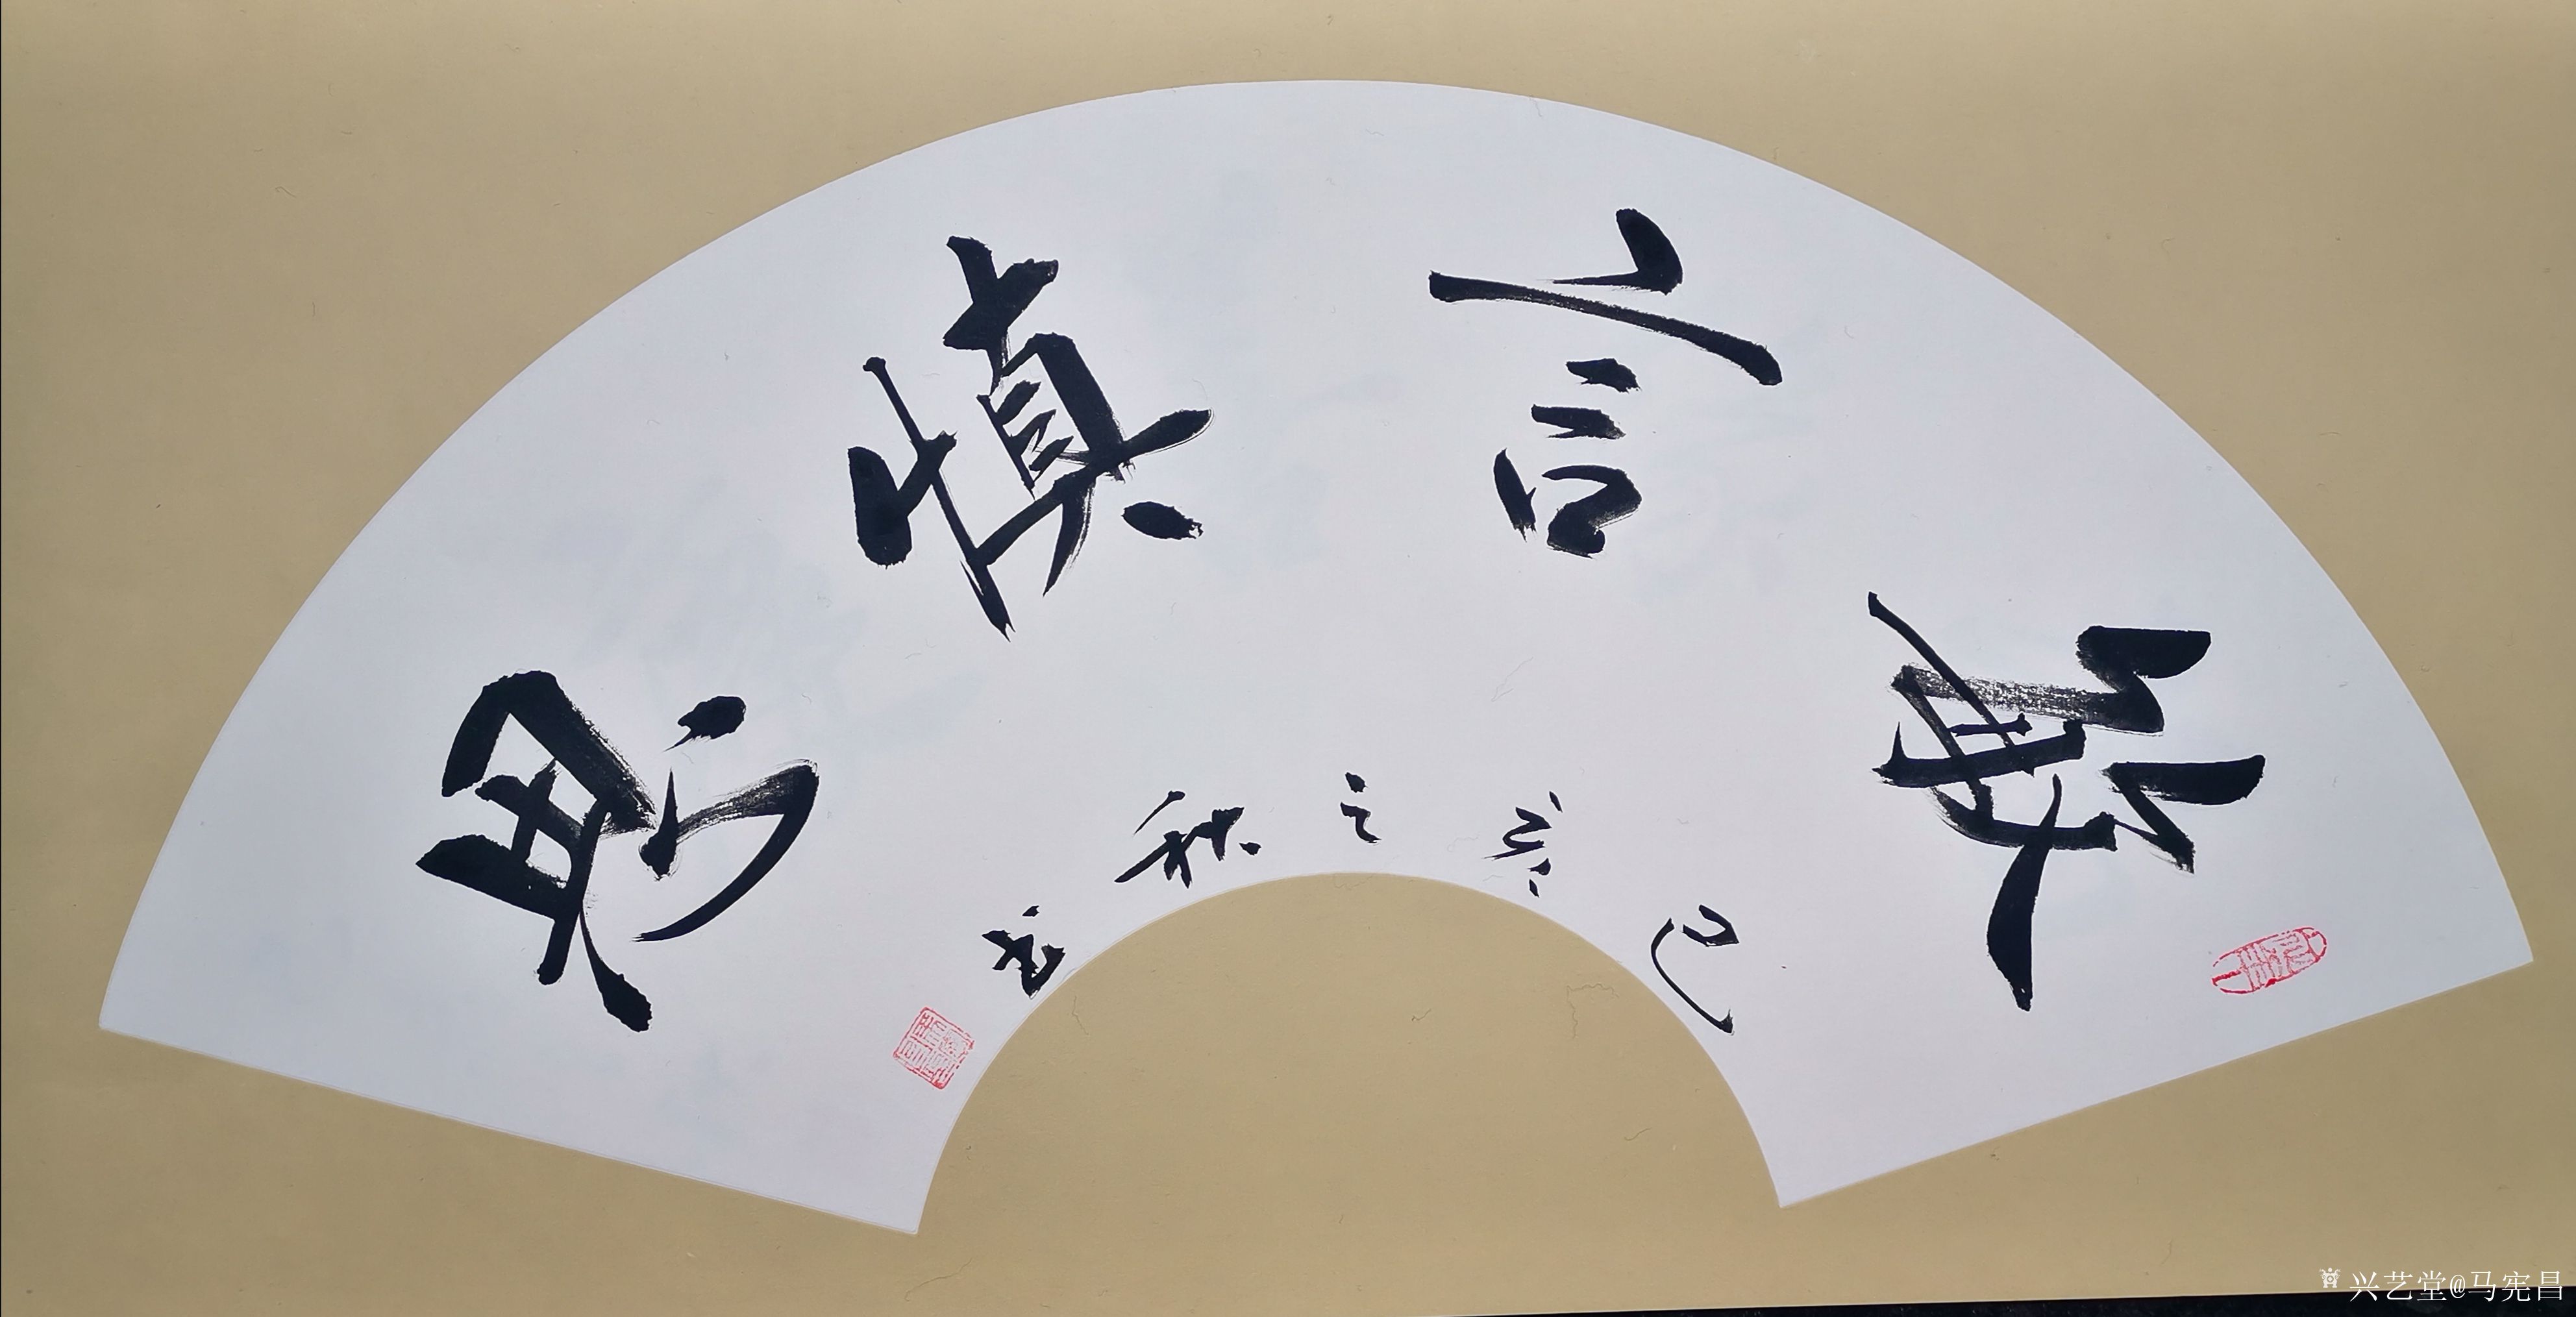 敏言慎思
己亥之秋
兴艺堂@马宪昌